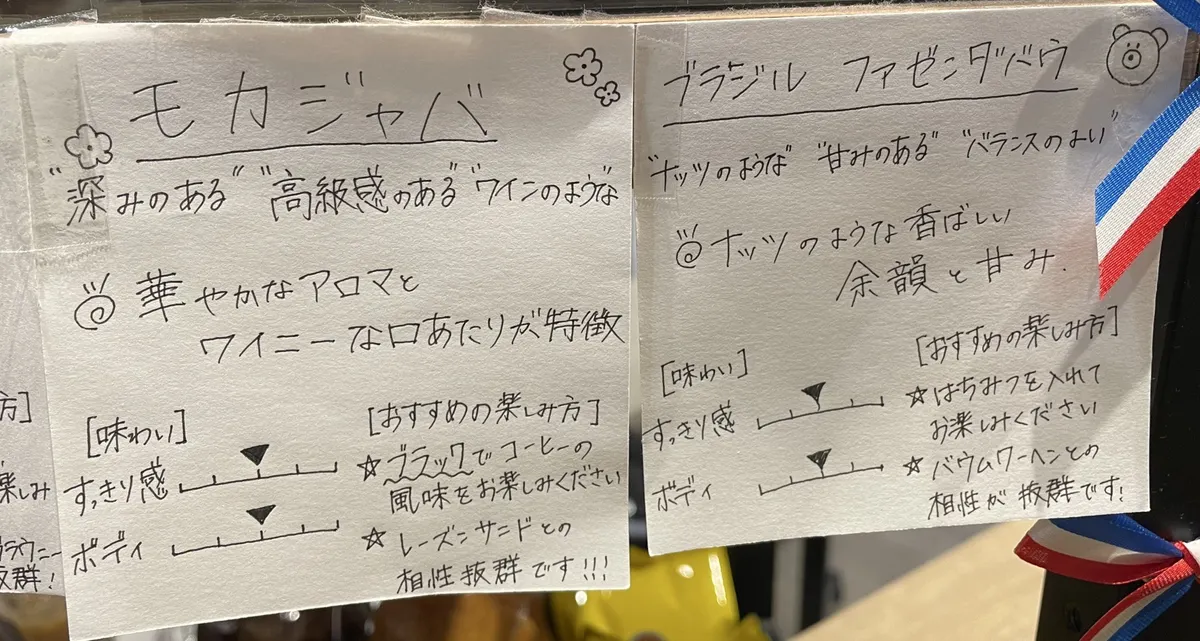 モカジャバ
"深みのある" "高級感のある" "ワインのような
華やかなアロマと
ワイニーな口あたりが特徴
[味わい]
すっきり感
ボディ
[おすすめの楽しみ方]
☆ブラックでコーヒーの
風味をお楽しみください
☆レーズンサンドとの
相性抜群です!!!
ブラジル ファゼンダバウ
"ナッツのような" "甘みのある" "バランスのよい"
◎ナッツのような香ばしい
余韻と甘み.
[味わい]
すっきり感
ボディ
[おすすめの楽しみ方]
☆はちみつを入れて
お楽しみください
☆バウムクーヘンとの
相性が抜群です!
方]
楽しみ
ラウニー
抜群!